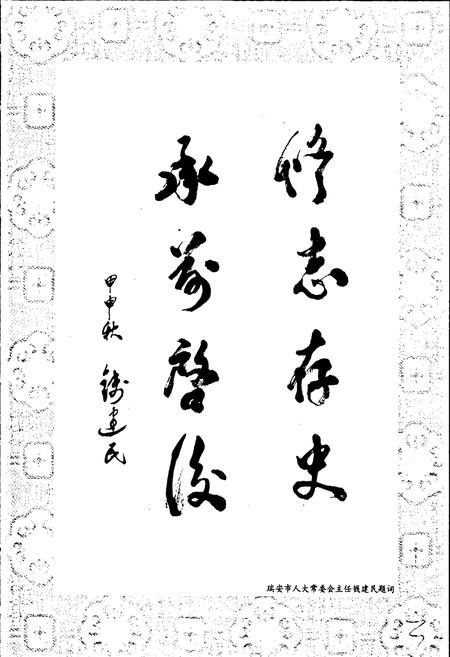 修志存史
承前啓後
甲申秋 錢建民
瑞安市人大常委会主任钱建民题词